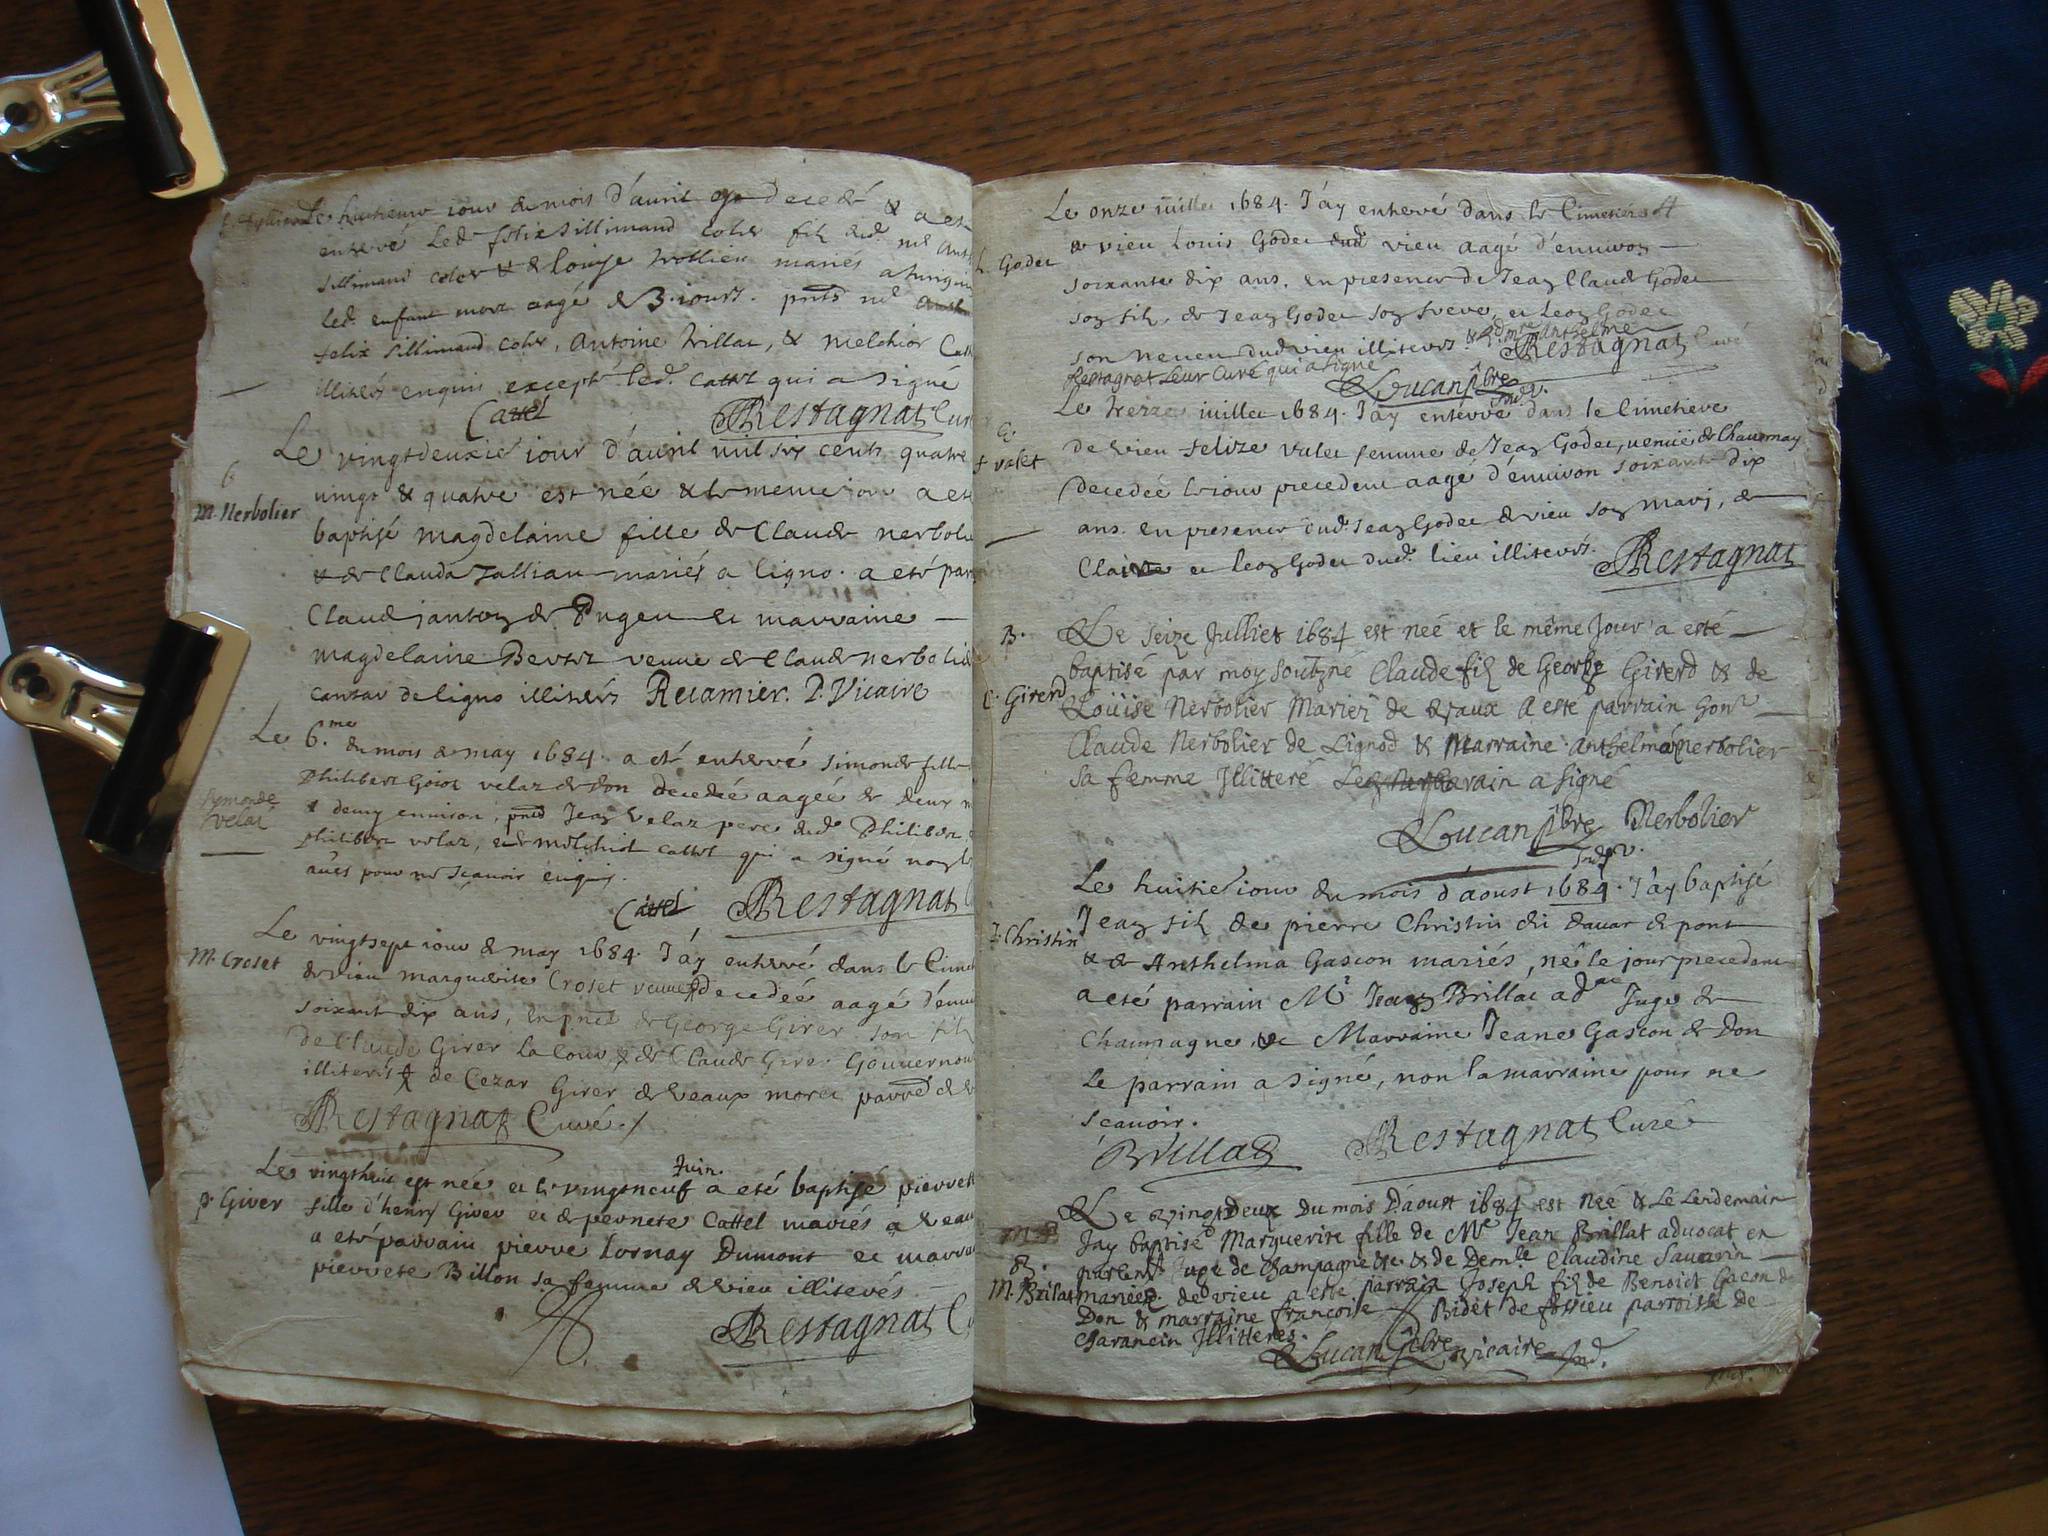 Le huitieme iour du mois d'avril decedé & a esté
enterré Led. felix Sillimand
Sillimand & de louise trollier mariés a
Led. enfant mort aagé de 3. iours. pnts
felix Sillimand, Antoine trillat, & melchior Cattel
illiterés enquis excepté led. Cattel qui a signé
Cattel Restagnat Curé
Le vingtdeuxie iour d'avril mil six cents quatre
M. Nerbolier
vingt & quatre est née & le meme iour a eté
baptisé magdelaine fille de Claude nerbolier
& de Clauda Jallian mariés a ligno. a eté parrain
Claud janton de Pugeu et marraine
magdelaine Bertet veuve de Claude nerbolier
de ligno illiterés Recamier. P. Vicaire
Le 6.me du mois de may 1684. a eté enterré simonde fille
Philibert Goiot velaz de don decedeé aageé de deux
Symonde velat
& demy environ, pnts Jean velaz pere dud. Philibert
philibert velaz, et de melchiot Cattel qui a signé non les
aues pour ne scavoir enquis.
Cattel Restagnat
Le vingtsept iour de may 1684. J'áy enterré dans le Cimetiere
M. Croset
de vieu marguerite Croset veuve decedeé aagé d'environ
soixante dix ans, En pnce de George Girer son fils
de Claude Girer la Cour & de Claude Girer Gouvernour
illiterés & de Cezar Girer de veaux
Restagnat Curé
Juin.
Le vingthuit est neé et le vingtneuf a eté baptisé pierrete
P. Girer
fille d'henry Girer et de pernete Cattel mariés a veaux
a eté parrain pierre lornay Dumont et marraine
pierrete Billon sa femme de vieu illiterés
Restagnat
Le onze iuillet 1684. J'áy enterré dans le Cimetiere
de vieu Louis Godet dud. vieu aagé d'environ
L. Godet
soixante dix ans, en presence de Jean Claude Godet
son fils, de Jean Godet son frere, et leon Godet
son neveu dud vieu illiterés & de mre Anthelme
Restagnat Leur Curé qui a signé Restagnat Curé
Lucan pbre
Le treize iuillet 1684. J'áy enterré dans le Cimetiere
de vieu felize valet femme de Jean Godet, venuë de Chavornay
f valet
decedeé le iour precedent aagé d'environ soixante dix
ans. en presence dud. Jean Godet de vieu son mary, de
Claire et leon Godet dud. lieu illiterés. Restagnat
B. Le seize Julliet 1684 est neé et le même Jour a esté
baptisé par moy soubzné Claude fils de George Girerd & de
C. Girerd
Louïse Nerbolier Mariez de veaux A esté parrain hont
Claude Nerbolier de Lignod & Marraine Anthelma nerbolier
sa femme Illitteré Led parrain a signé
Lucan pbre Nerbolier
Le huitie iour du mois d'áoust 1684. J'áy baptisé
Jean fils de pierre Christin dit davar de pont
J. Christin
& de Anthelma Gascon mariés, né le jour precedent
a eté parrain Mr Jean Brillat adat Juge de
Champagne, & Marraine Jeane Gascon de Don
Le parrain a signé, non la marraine pour ne
scavoir.
Brillat Restagnat Curé
Le vingt Deux Du mois D'áoust 1684 est Neé & Le Lendemain
Jay baptisé Marguerite fille de Me Jean Brillat advocat en
B. parlemt Juge de Champagne &c & de Demlle Claudine Savarin
M. Brilat mariez de vieu a esté parrain Joseph fils de Benoict Gacon de
Don & marraine francoise Bidet de fossieu parroisse de
Charancin Illitteres.
Lucan pbre vicaire Ind.